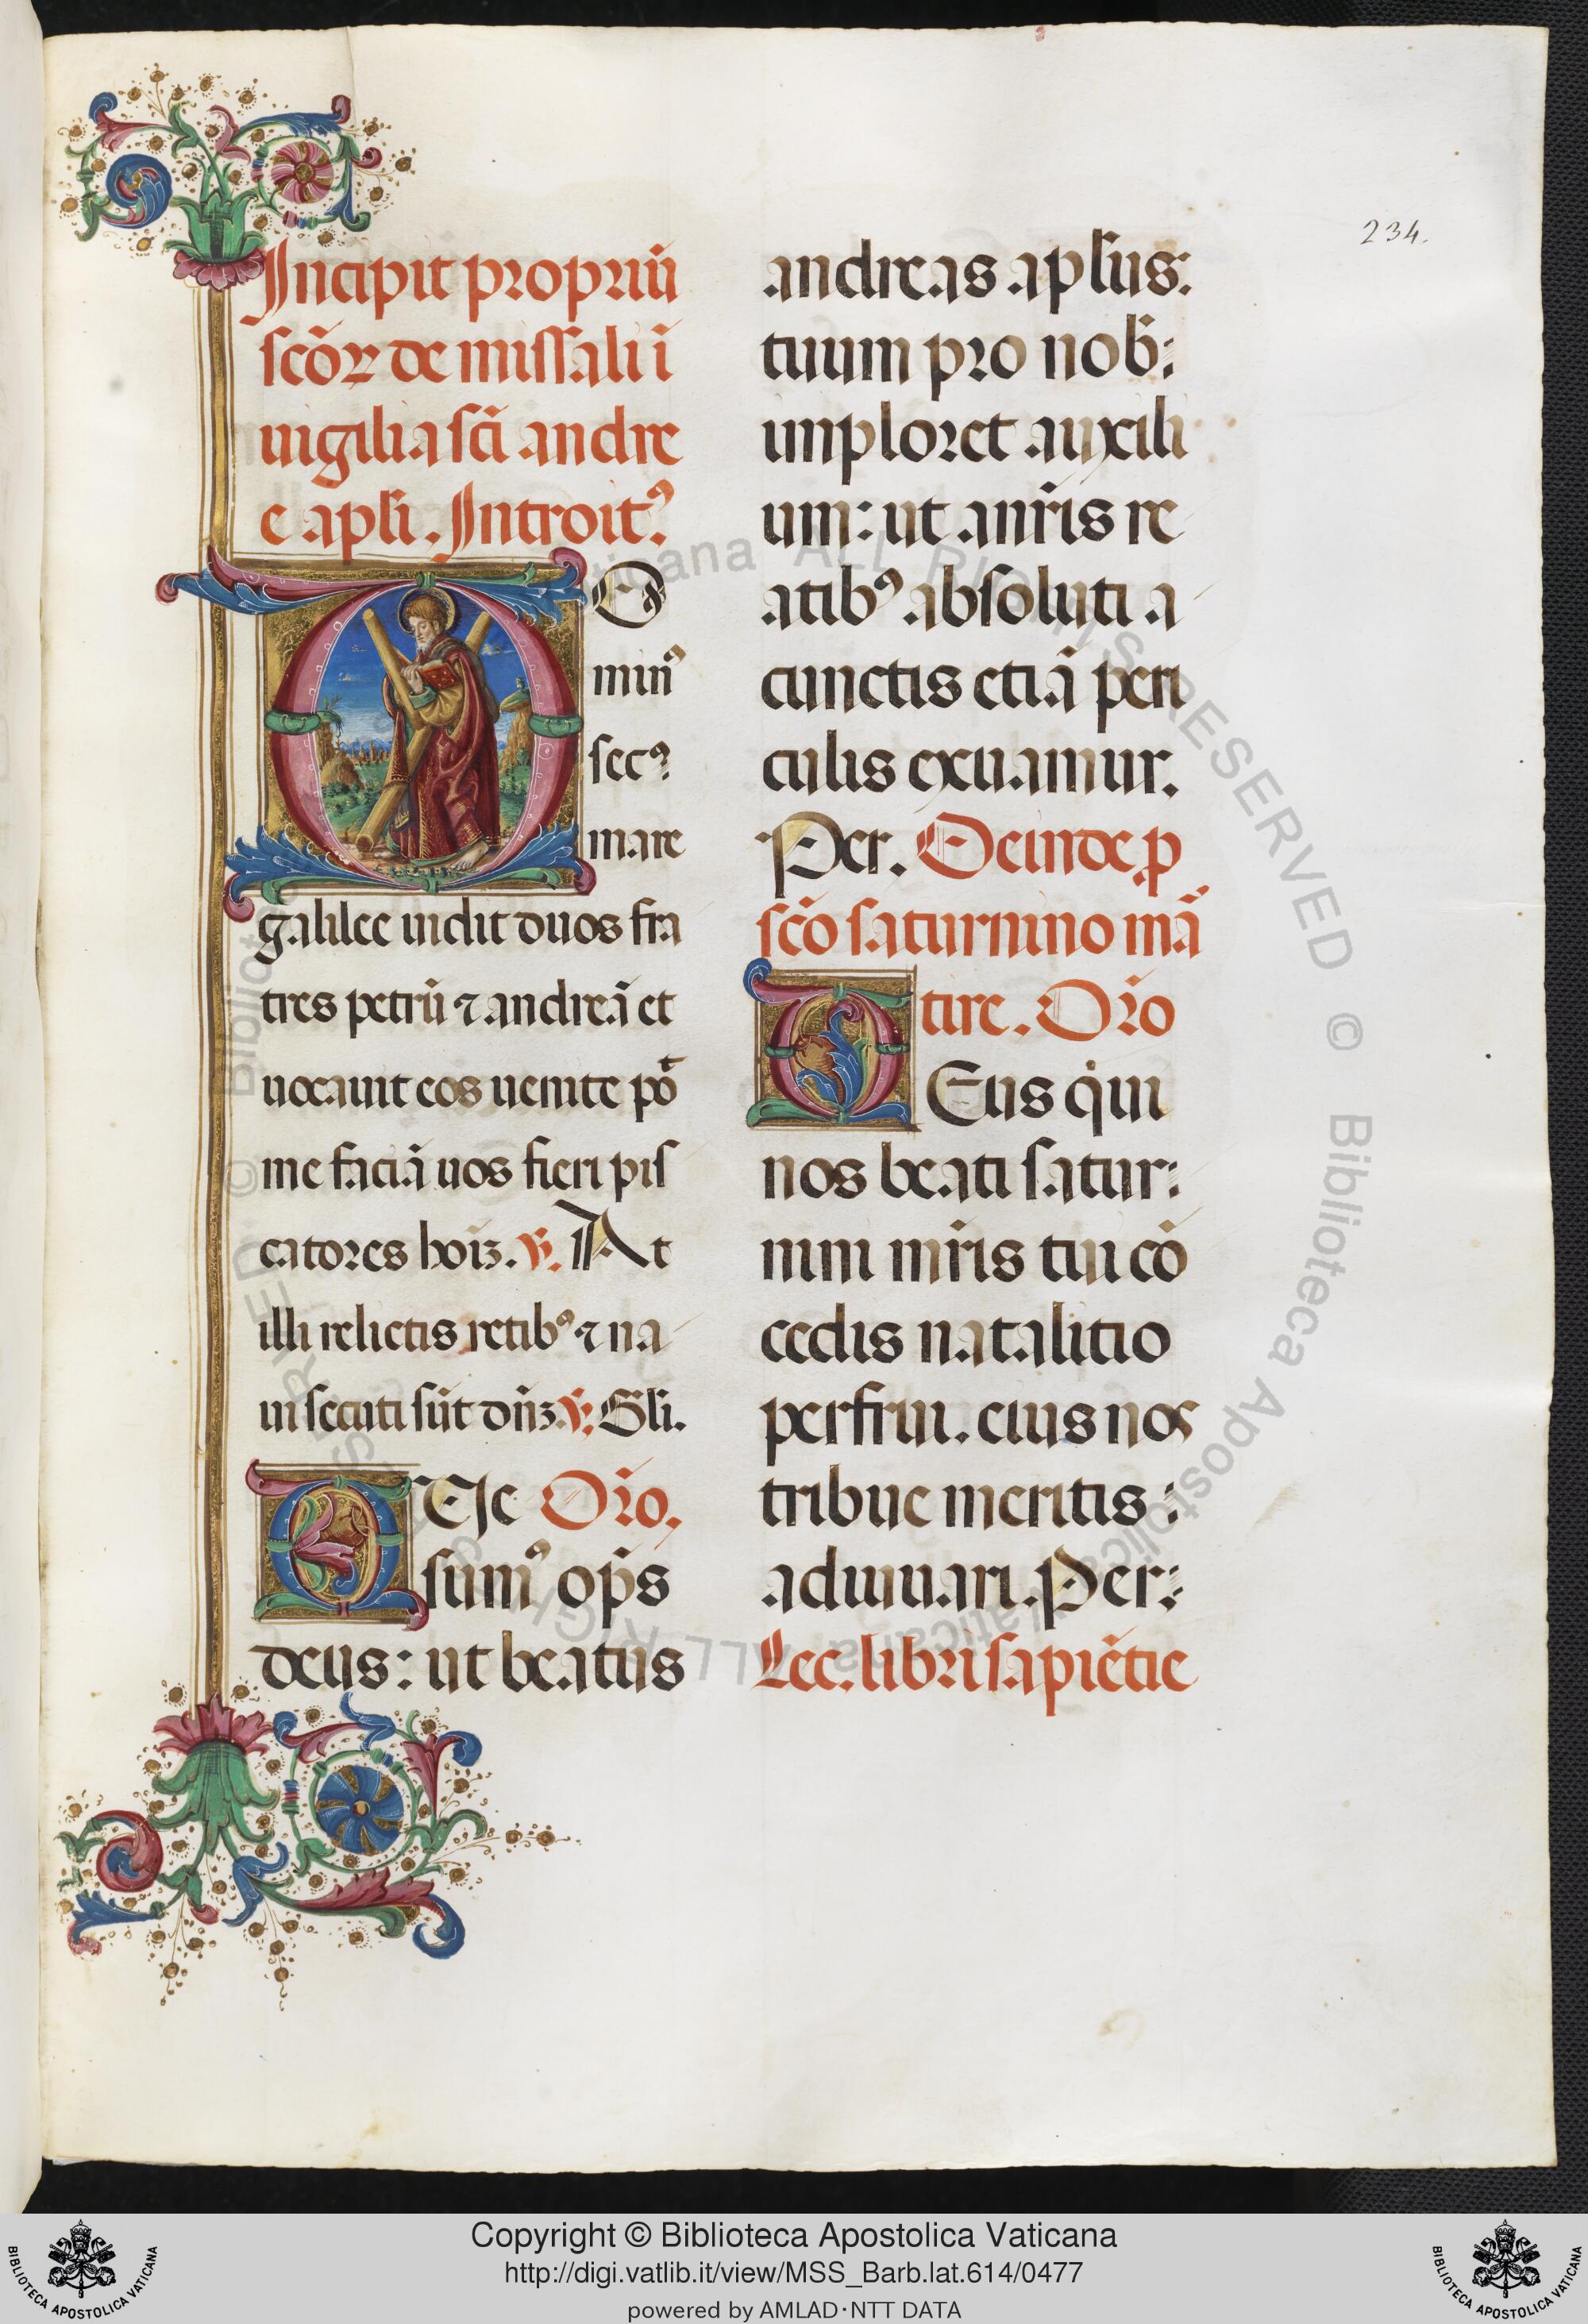 Incipit propriũ
scõꝝ de missali ĩ
uigilia scĩ andre
e apl̃i. Introitꝰ.
DO
minꝰ
secꝰ
mare
galilee uidit duos fra
tres petrũ ⁊ andreã et
uocauit eos uenite põt
me faciã uos fieri pis
catores hoĩʒ. ℣. At
illi relictis retibꝰ ⁊ na
ui secuti sũt dñʒ. ℣. Gl̃i.
QEſe Or̃o.
sumꝰ op̃s
deus: ut beatus
234.
andreas apl̃us:
tuum pro nob̃:
imploret auxili
um: ut a nr̃is re
atibꝰ absoluti a
cunctis etiã peri
culis exuamur.
Per. Deinde ꝓ
scõ saturnino mã
tire. Or̃o
DEus qui
nos beati satur:
nini mr̃is tui cõ
cedis natalitio
perfrui. eius nos
tribue meritis:
adiuuari. Per:
Lec. libri sapiẽtie
Copyright © Biblioteca Apostolica Vaticana
http://digi.vatlib.it/view/MSS_Barb.lat.614/0477
powered by AMLAD·NTT DATA
BIBLIOTECA APOSTOLICA VATICANA
BIBLIOTECA APOSTOLICA VATICANA